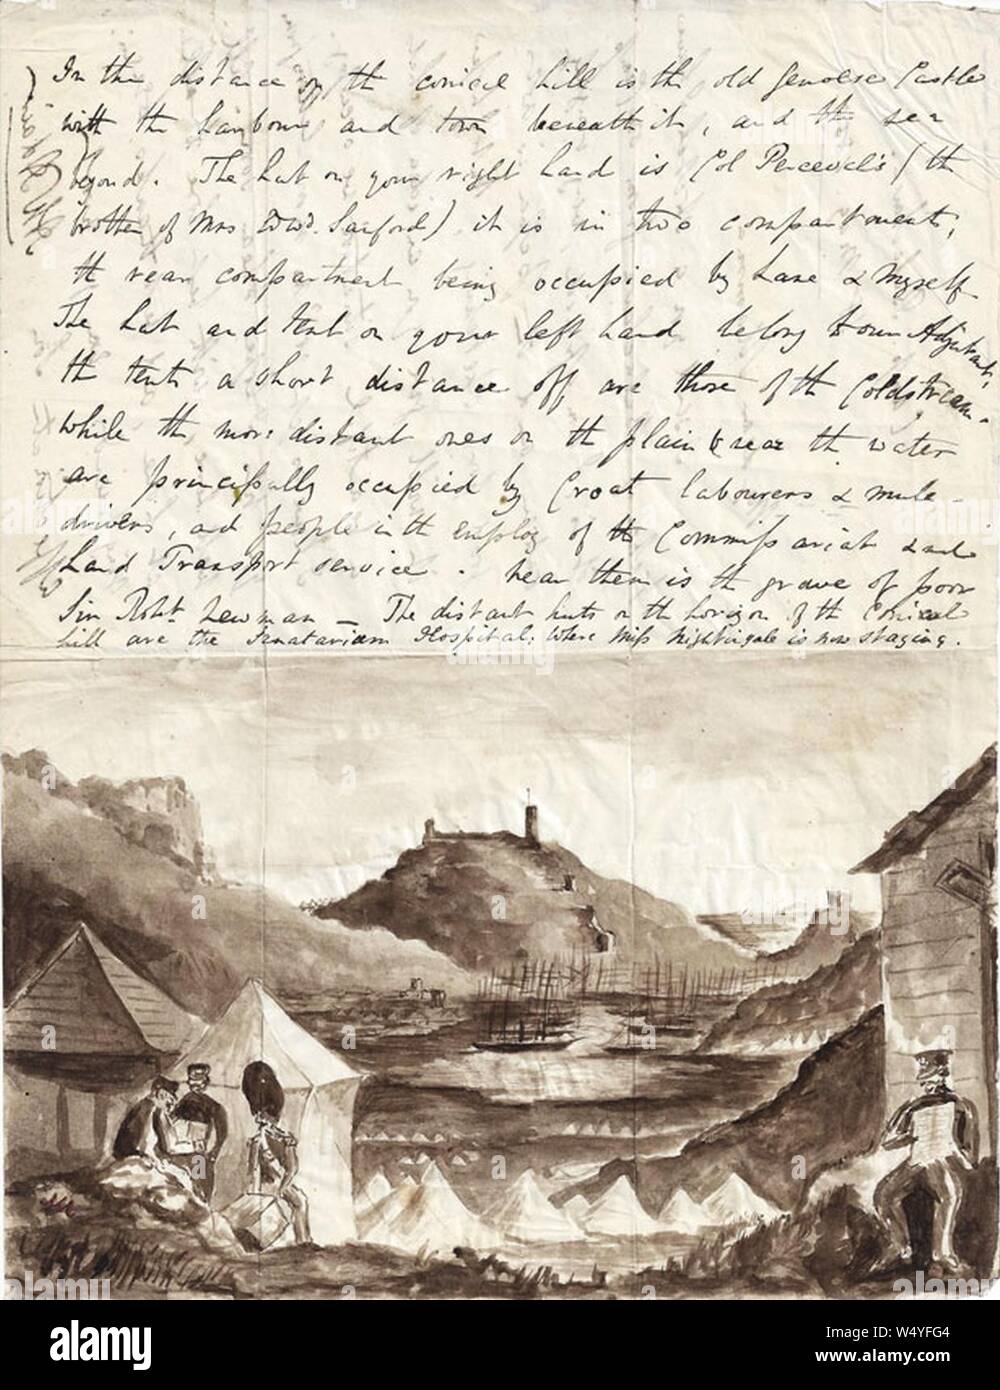 In the distance on the conical hill is the old Genoese Castle
with the harbour and town beneath it, and the sea
beyond. The hut on your right hand is Col Perceval's (the
brother of Mrs Edwd. Sanford) it is in two compartments,
the rear compartment being occupied by Lane & myself
The hut and tent on your left hand belong to our Adjutant,
the tents a short distance off are those of the Coldstream.
while the more distant ones on the plain & near the water
are principally occupied by Croat labourers & mule-
drivers, and people in the employ of the Commissariat and
Land Transport service. Near them is the grave of poor
Sir Robt. Newman – The distant huts on the horizon of the Conical
hill are the Sanatarium Hospital; where Miss Nightingale is now staying.
alamy
Image ID: W4YFG4
www.alamy.com